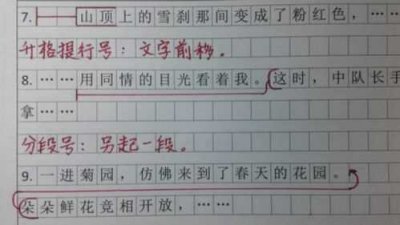 7. 山顶上的雪刹那间变成了粉红色，……
升格提行号：文字前移。
8. ……用同情的目光看着我。这时，中队长手
拿……
分段号：另起一段。
9. 一进菊园，仿佛来到了春天的花园。
朵朵鲜花竞相开放，……